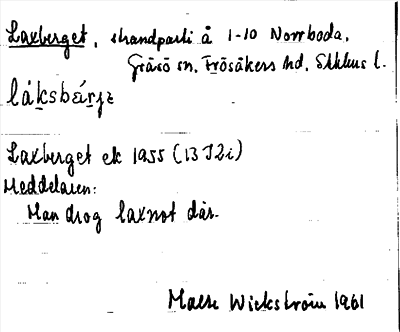 Laxberget, strandparti å 1-10 Norrboda,
Gräsö sn, Frösåkers hd, Sthlms l.
láksbárjɛ
Laxberget ek 1955 (13 I2i)
Meddelaren:
Man drog laxnot där.
Malte Wickström 1961